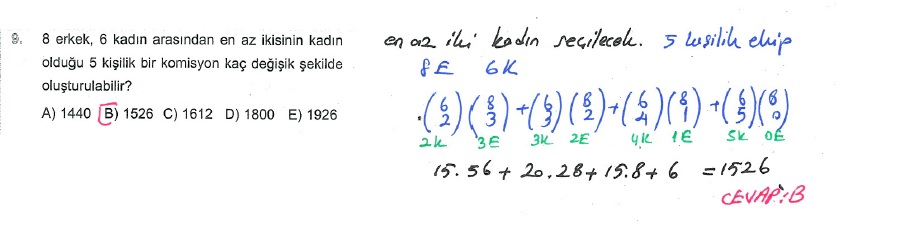 9. 8 erkek, 6 kadın arasından en az ikisinin kadın
olduğu 5 kişilik bir komisyon kaç değişik şekilde
oluşturulabilir?
A) 1440 B) 1526 C) 1612 D) 1800 E) 1926
en az iki kadın seçilecek. 5 kişilik ekip
8E 6K
(6 2)(8 3)+(6 3)(8 2)+(6 4)(8 1)+(6 5)(8 0)
2K 3E 3K 2E 4K 1E 5K 0E
15.56+20.28+15.8+6 =1526
CEVAP:B